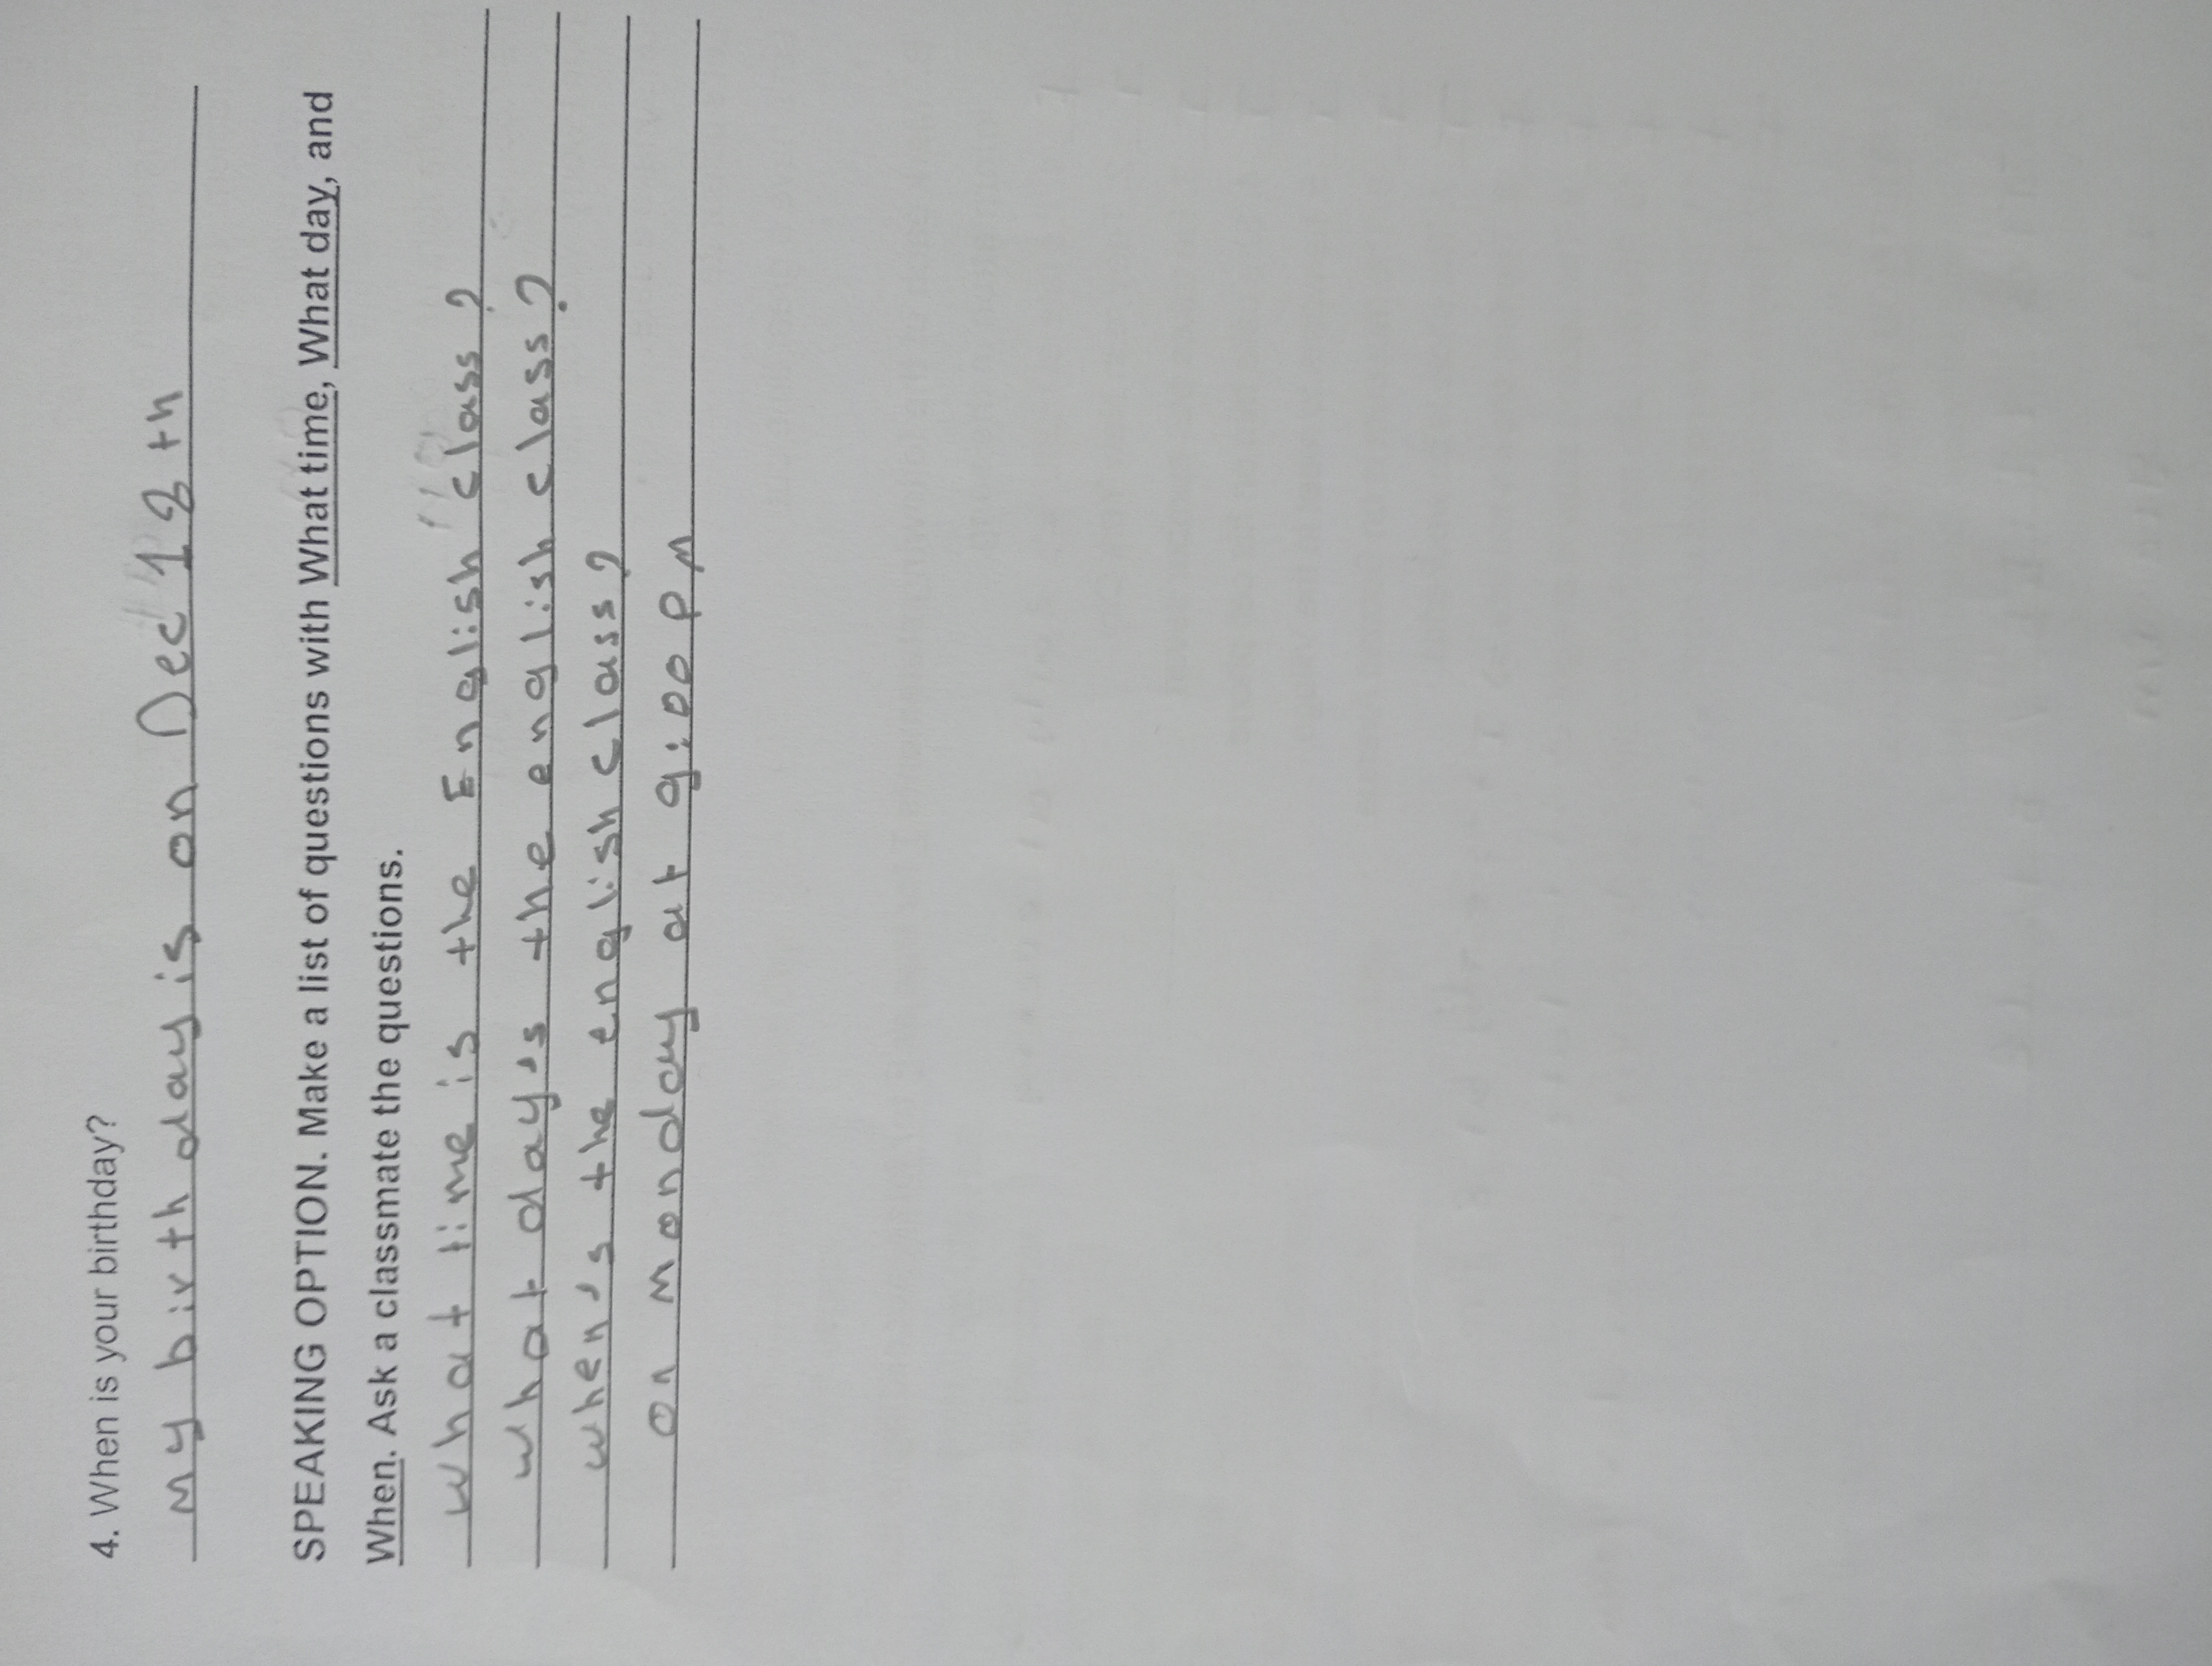 4. When is your birthday?
My birthday is on Dec 18th
SPEAKING OPTION. Make a list of questions with What time, What day, and
When. Ask a classmate the questions.
What time is the English class?
what day's the english class?
when's the english class?
on Monday at 9:00 PM